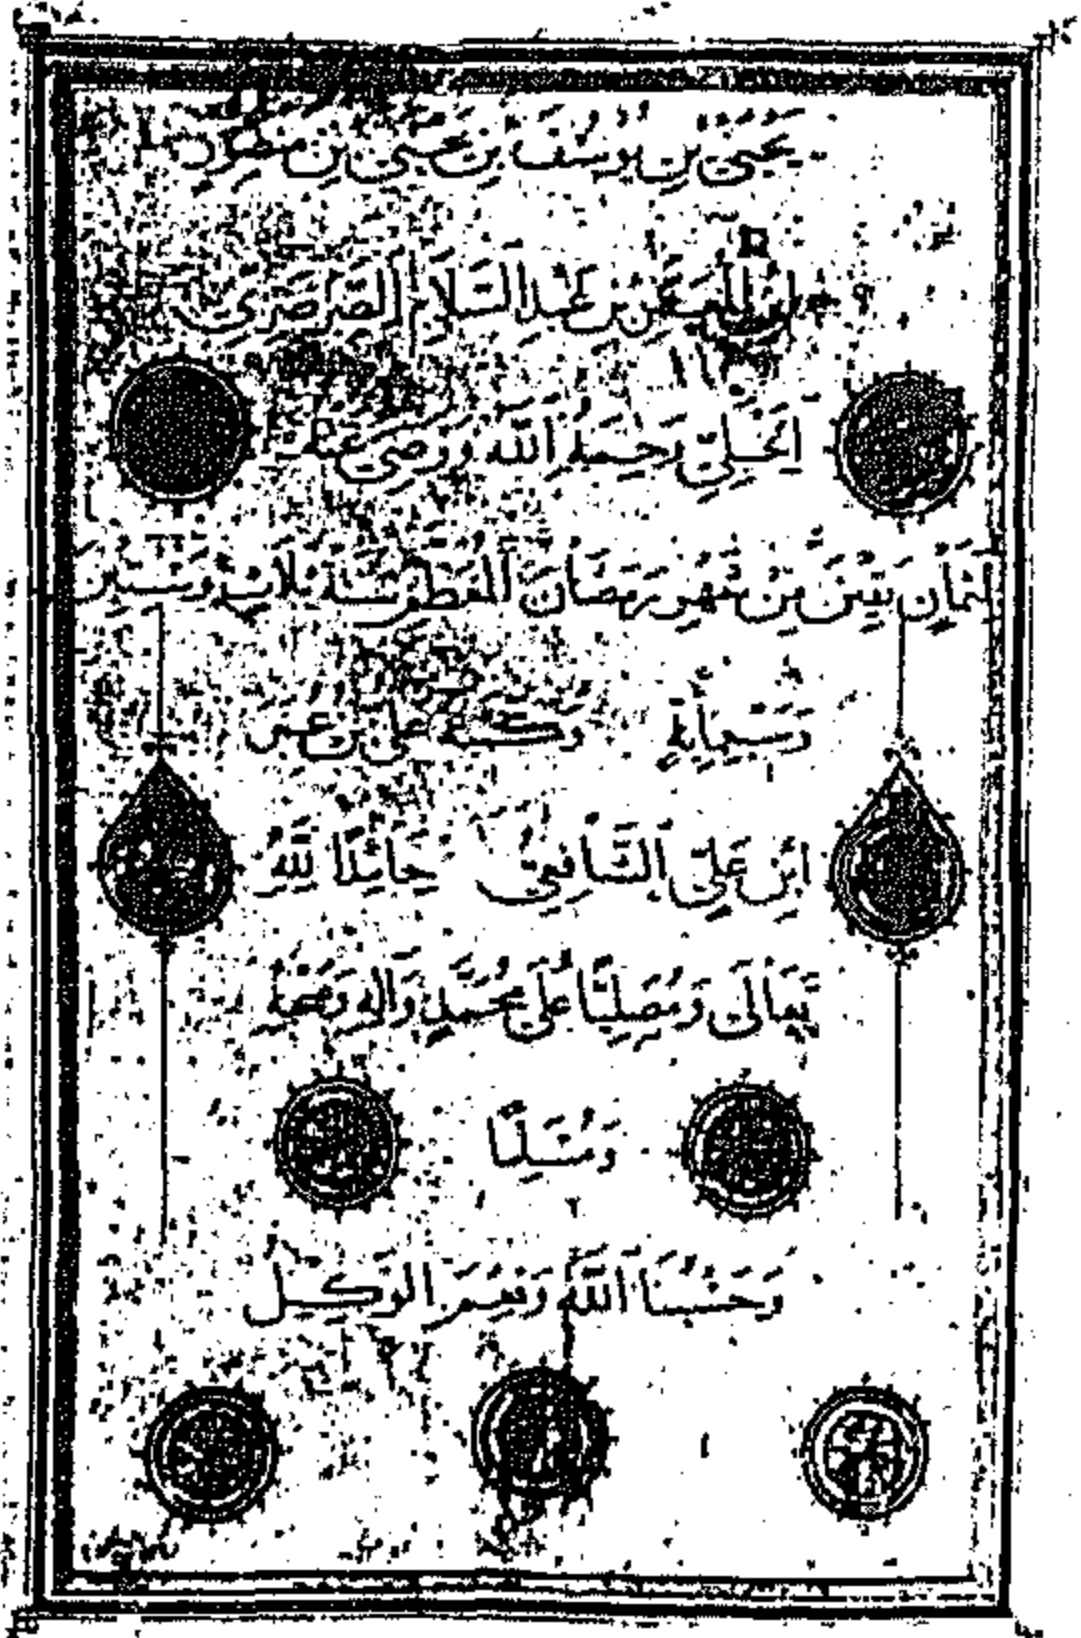 يَحْيَى بْنِ يُوسُفَ بْنِ يَحْيَى بْنِ مَنْصُور
ابْنِ المُعَمَّرِ بْنِ عَبْدِ السَّلَامِ الصَّرْصَرِيّ
الحَنْبَلِيّ رَحِمَهُ اللَّه وَرَضِيَ عَنْهُ
لِثَمَانٍ بَقِينَ مِنْ شَهْرِ رَمَضَانَ المُعَظَّمِ سَنَةَ ثَلَاثٍ وَسِتِّينَ
وَسَبْعِمِائَةٍ وَكَتَبَهُ عَلِيُّ بْنُ عُمَرَ
ابْنِ عَلِيّ الشَّافِعِيُّ حَامِدًا لِلَّهِ
تَعَالَى وَمُصَلِّيًا عَلَى مُحَمَّدٍ وَآلِهِ وَصَحْبِهِ
وَمُسَلِّمًا
وَحَسْبُنَا اللَّهُ وَنِعْمَ الْوَكِيلُ